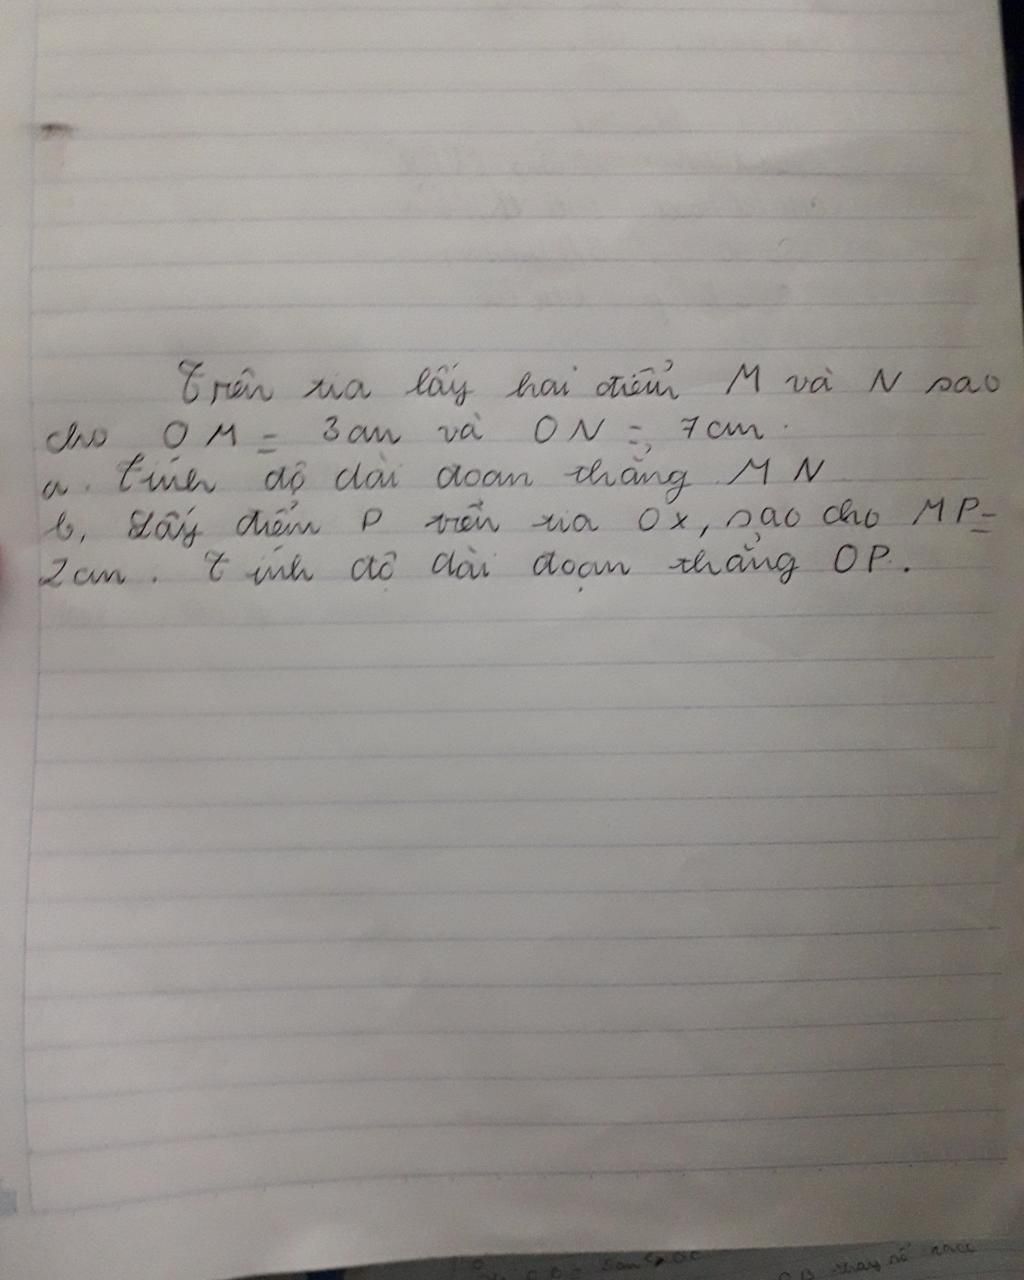 Trên tia lấy hai điểm M và N sao
cho OM = 3cm và ON = 7cm.
a. Tính độ dài đoạn thẳng MN
b, Lấy điểm P trên tia Ox, sao cho MP =
2cm. Tính độ dài đoạn thẳng OP.